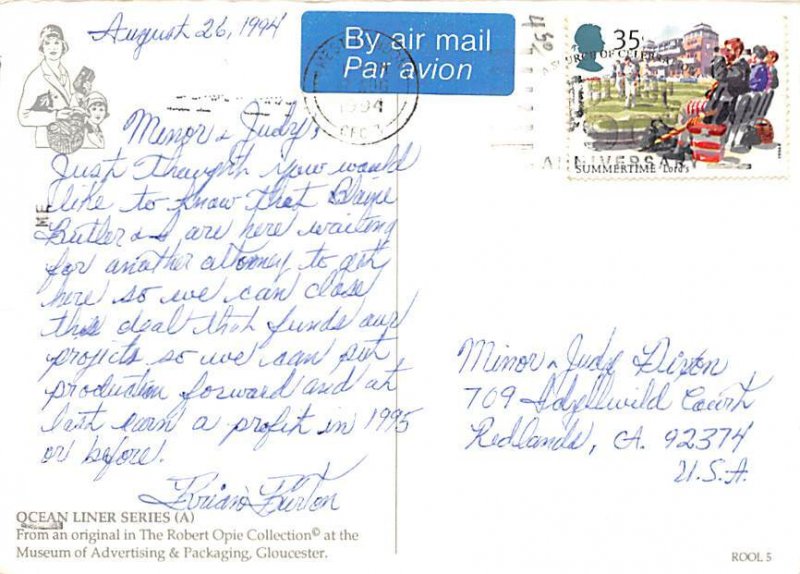 August 26, 1994
By air mail
Par avion
1994
35
SUMMERTIME Lord's
ANNIVERSARY
Minor & Judy,
Just thought you would
like to know that Blayne
Butler & I are here waiting
for another attorney to get
here so we can close
this deal that funds our
projits so we can put
production forward and at
last earn a profit in 1995
or before.
Brian Burton
Minor & Judy Dixon
709 Idyllwild Court
Redlands, CA. 92374
U.S.A
OCEAN LINER SERIES (A)
From an original in The Robert Opie Collection© at the
Museum of Advertising & Packaging, Gloucester.
ROOL 5